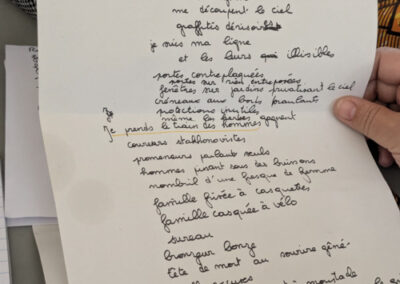 me découpent le ciel
graffités dérisoires
je suis ma ligne
et les leurs illisibles
portes contreplaquées
portes sur rien entreposées
fenêtres sur jardins privatisant le ciel
créneaux aux bois
protections inutiles
même les herbes gagnent
Je prends le train des hommes
coureurs stakhanovistes
promeneurs parlant seuls
hommes pissant sous des buissons
nombril d'une fresque de femme
famille fixée à casquettes
famille casquée à vélo
sureau
bronzeur bonze
tête de mort au sourire gêné
à moustache